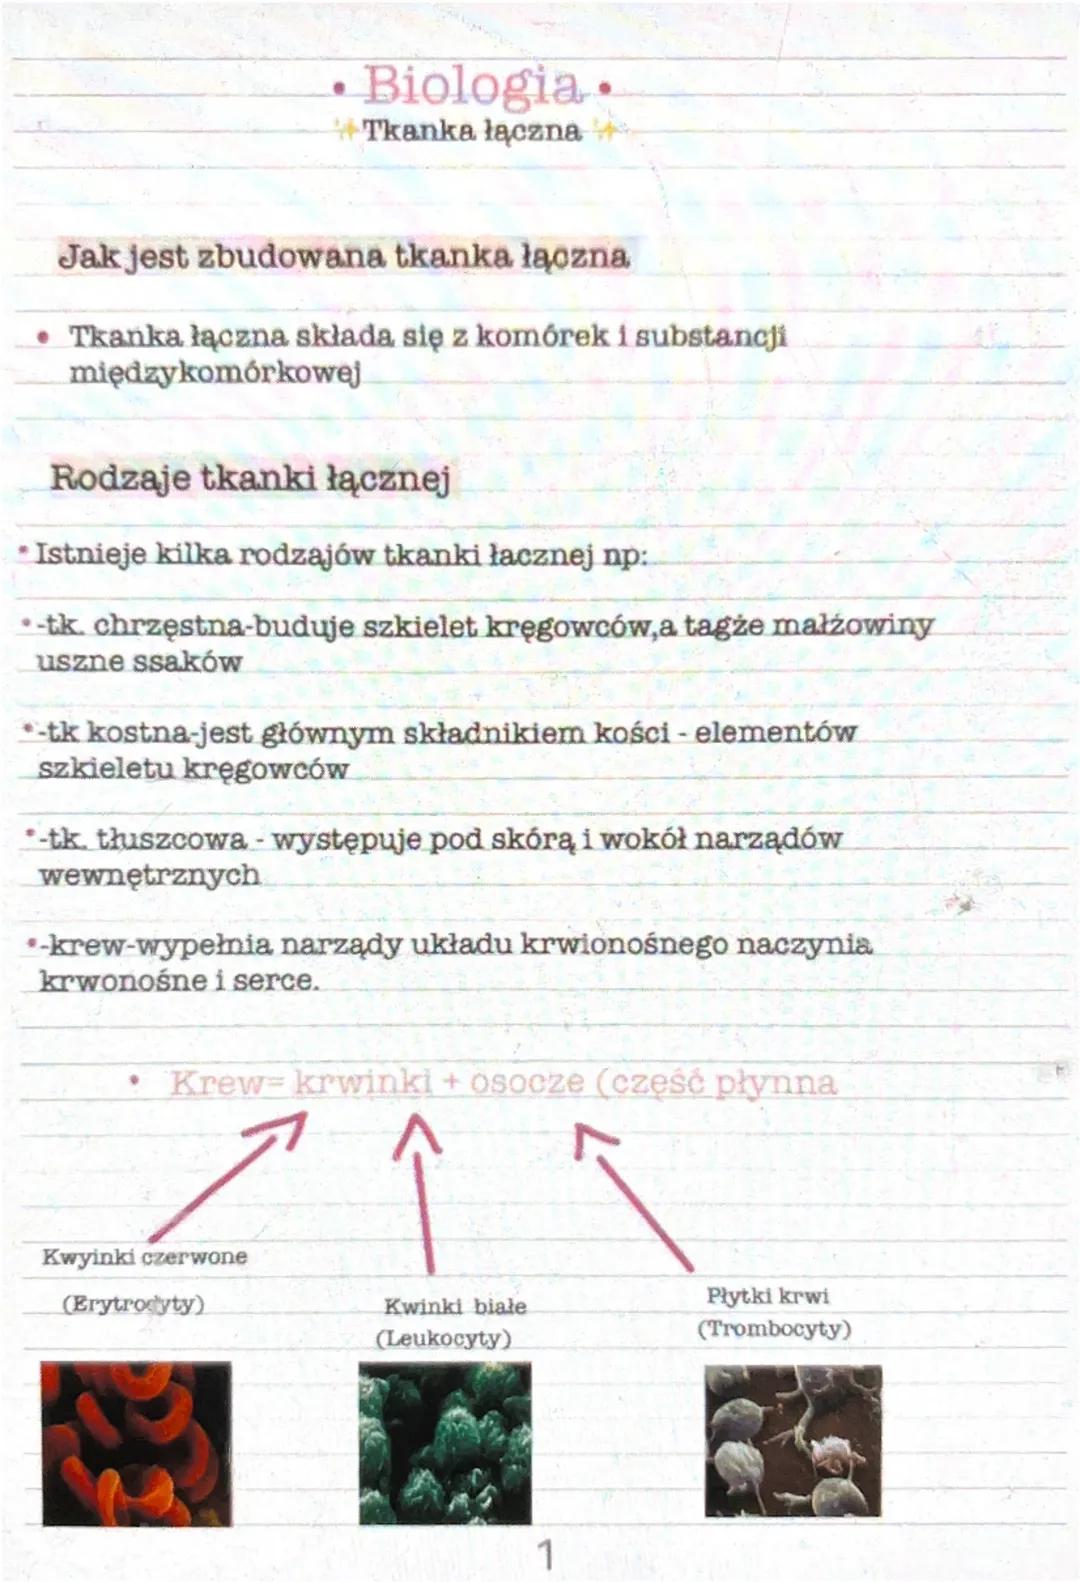 • Biologia •
✨Tkanka łączna ✨
Jak jest zbudowana tkanka łączna
• Tkanka łączna składa się z komórek i substancji
międzykomórkowej
Rodzaje tkanki łącznej
• Istnieje kilka rodzajów tkanki łacznej np:
• -tk. chrzęstna-buduje szkielet kręgowców,a tagże małżowiny
uszne ssaków
• -tk kostna-jest głównym składnikiem kości - elementów
szkieletu kręgowców
• -tk. tłuszcowa - występuje pod skórą i wokół narządów
wewnętrznych
• -krew-wypełnia narządy układu krwionośnego naczynia
krwonośne i serce.
• Krew= krwinki + osocze (część płynna
Kwyinki czerwone
(Erytrocyty)
Kwinki białe
(Leukocyty)
Płytki krwi
(Trombocyty)
1